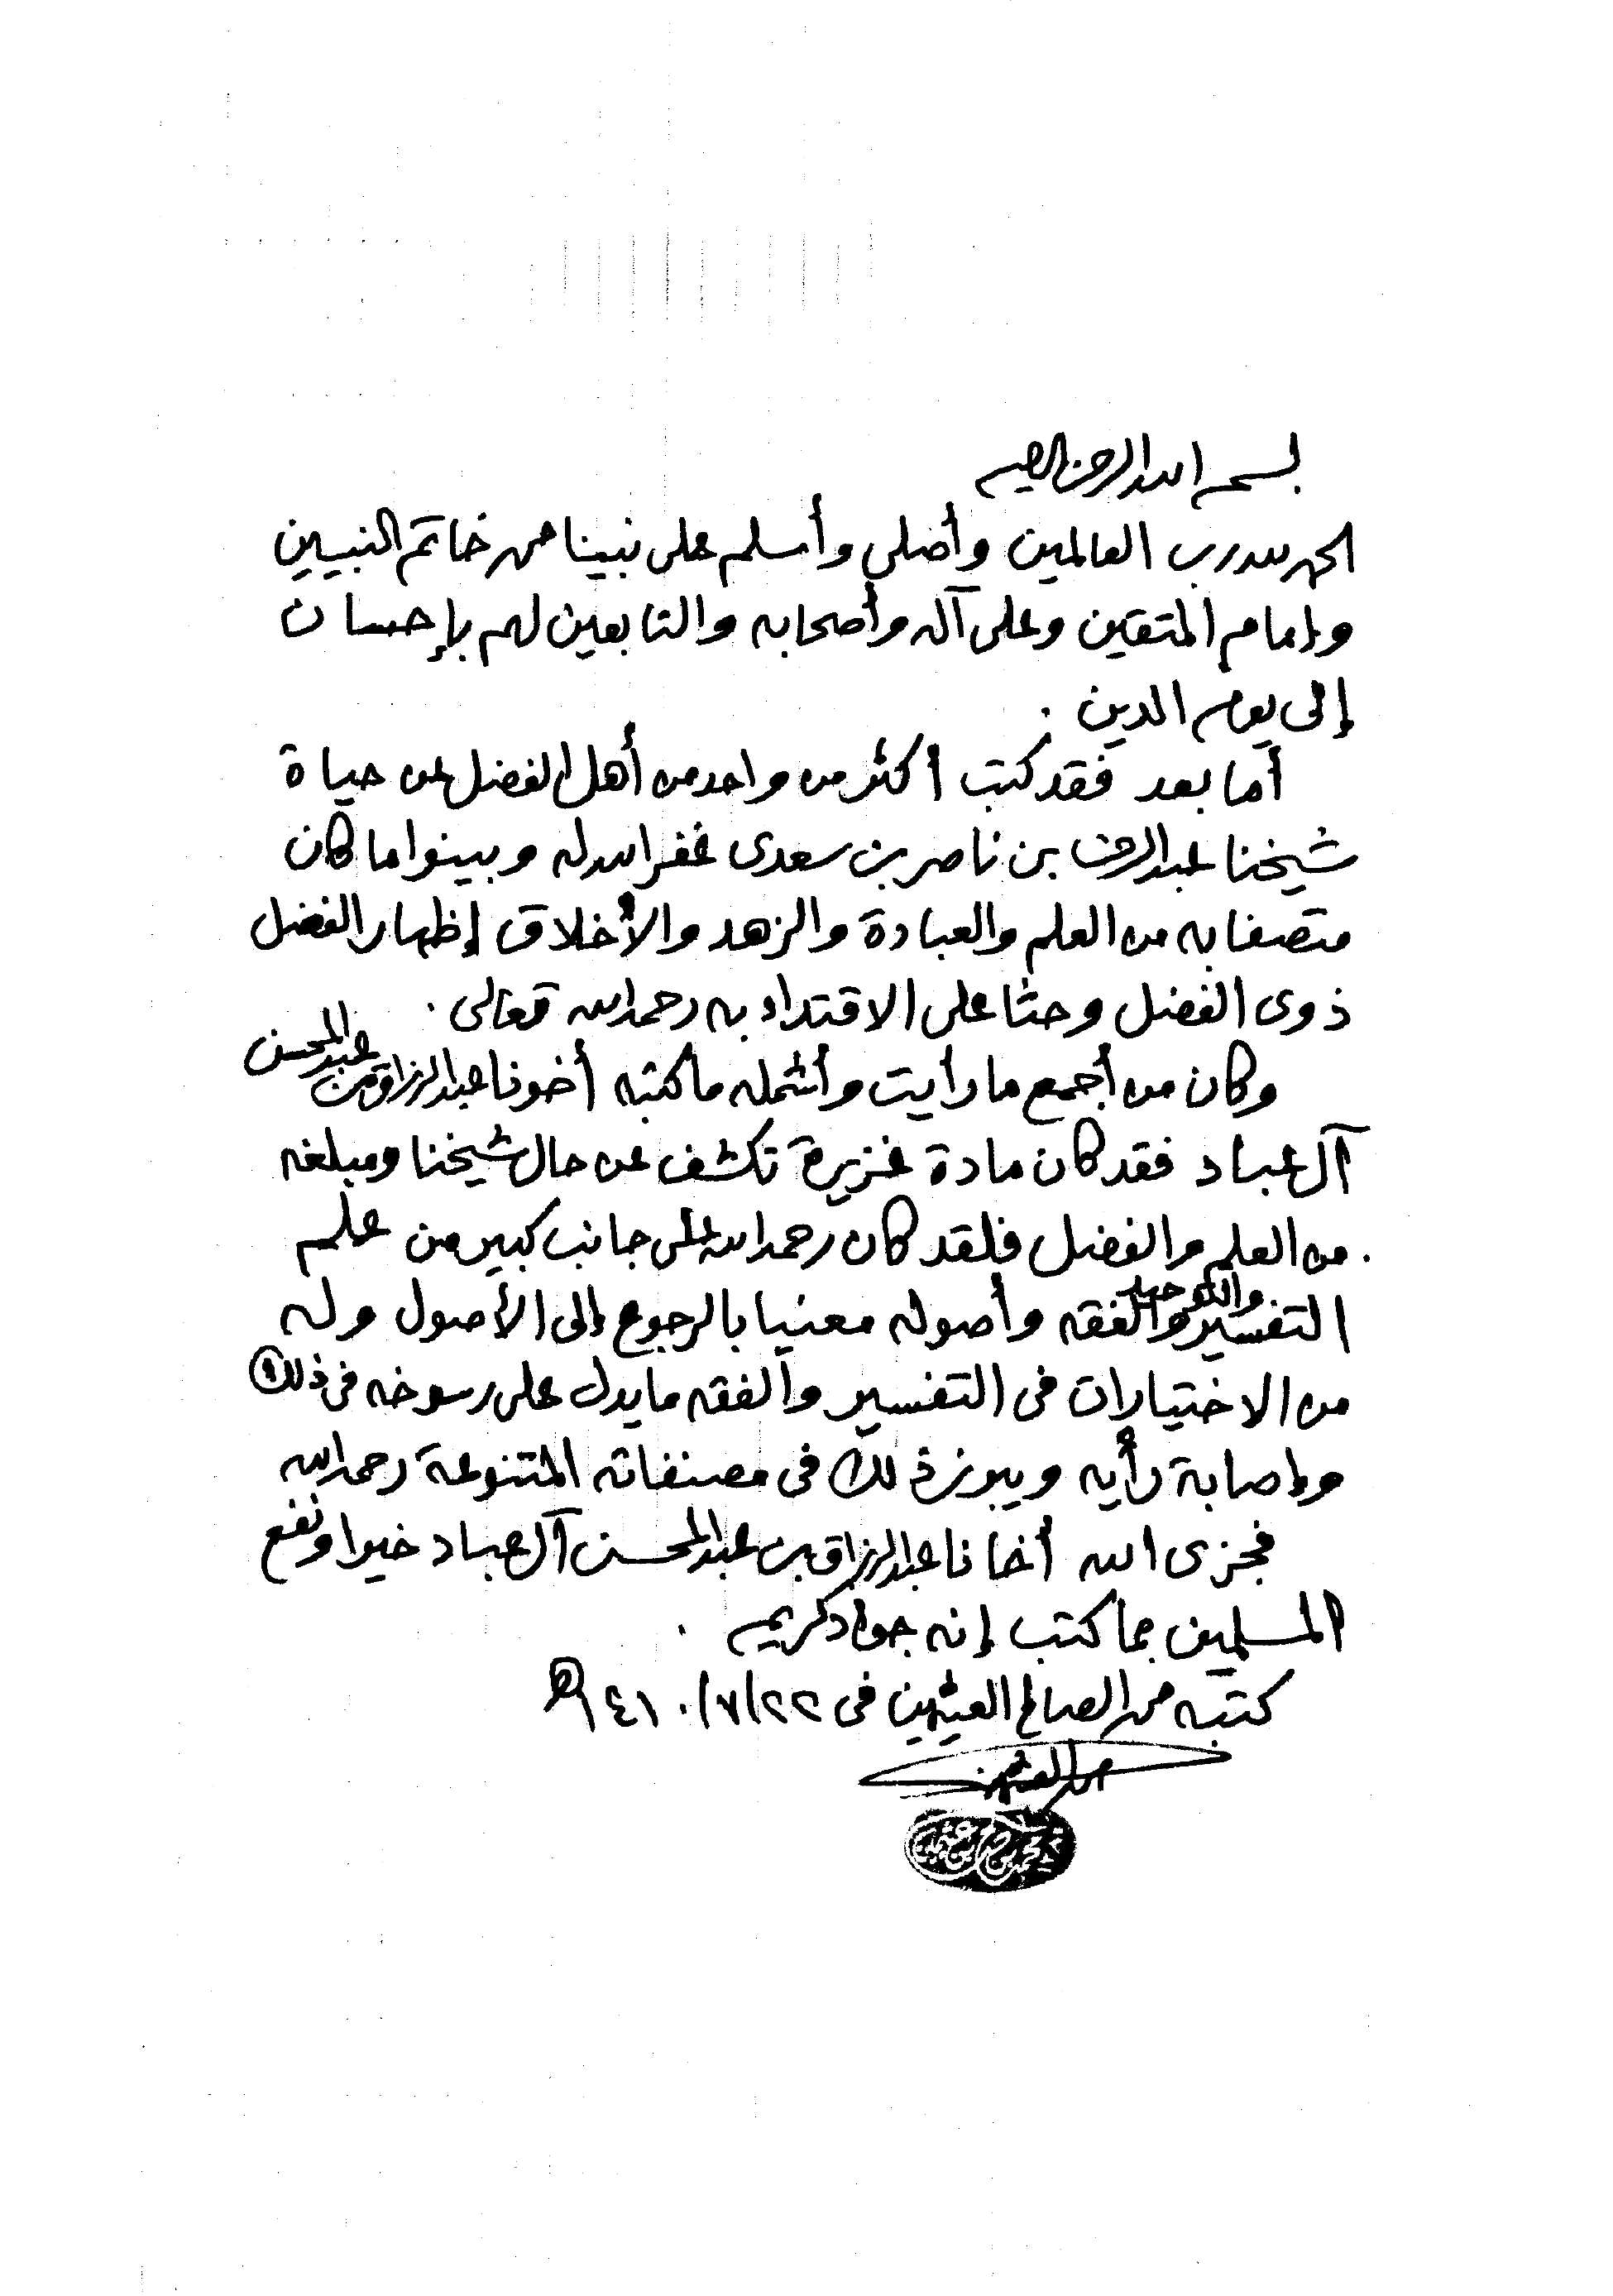 بسم الله الرحمن الرحيم
الحمد لله رب العالمين وأصلي وأسلم على نبينا محمد خاتم النبيين
وإمام المتقين وعلى آله وأصحابه والتابعين لهم بإحسان
إلى يوم الدين .
أما بعد فقد كتب أكثر من واحد من أهل الفضل عن حياة
شيخنا عبد الرحمن بن ناصر بن سعدى غفر الله له وبينوا ما كان
متصفا به من العلم والعبادة والزهد والأخلاق إظهار الفضل
ذوى الفضل وحثا على الاقتداء به رحمه الله تعالى .
وكان من أجمع ما رأيت وأشمله ما كتبه أخونا عبد الرزاق بن عبد المحسن
آل عباد فقد كان مادة غزيرة تكشف عن حال شيخنا ومبلغه
من العلم والفضل فلقد كان رحمه الله على جانب كبير من علم
التفسير والتوحيد والفقه وأصوله معنيا بالرجوع إلى الأصول وله
من الاختيارات فى التفسير والفقه ما يدل على رسوخه فى ذلك
وإصابة رأيه ويبرز ذلك فى مصنفاته المتنوعة رحمه الله
فجزى الله أخانا عبد الرزاق بن عبد المحسن آل عباد خيرا ونفع
المسلمين بما كتب إنه جواد كريم .
كتبه محمد الصالح العثيمين فى ٢٢/٧/١٤١٠هـ
محمد العثيمين